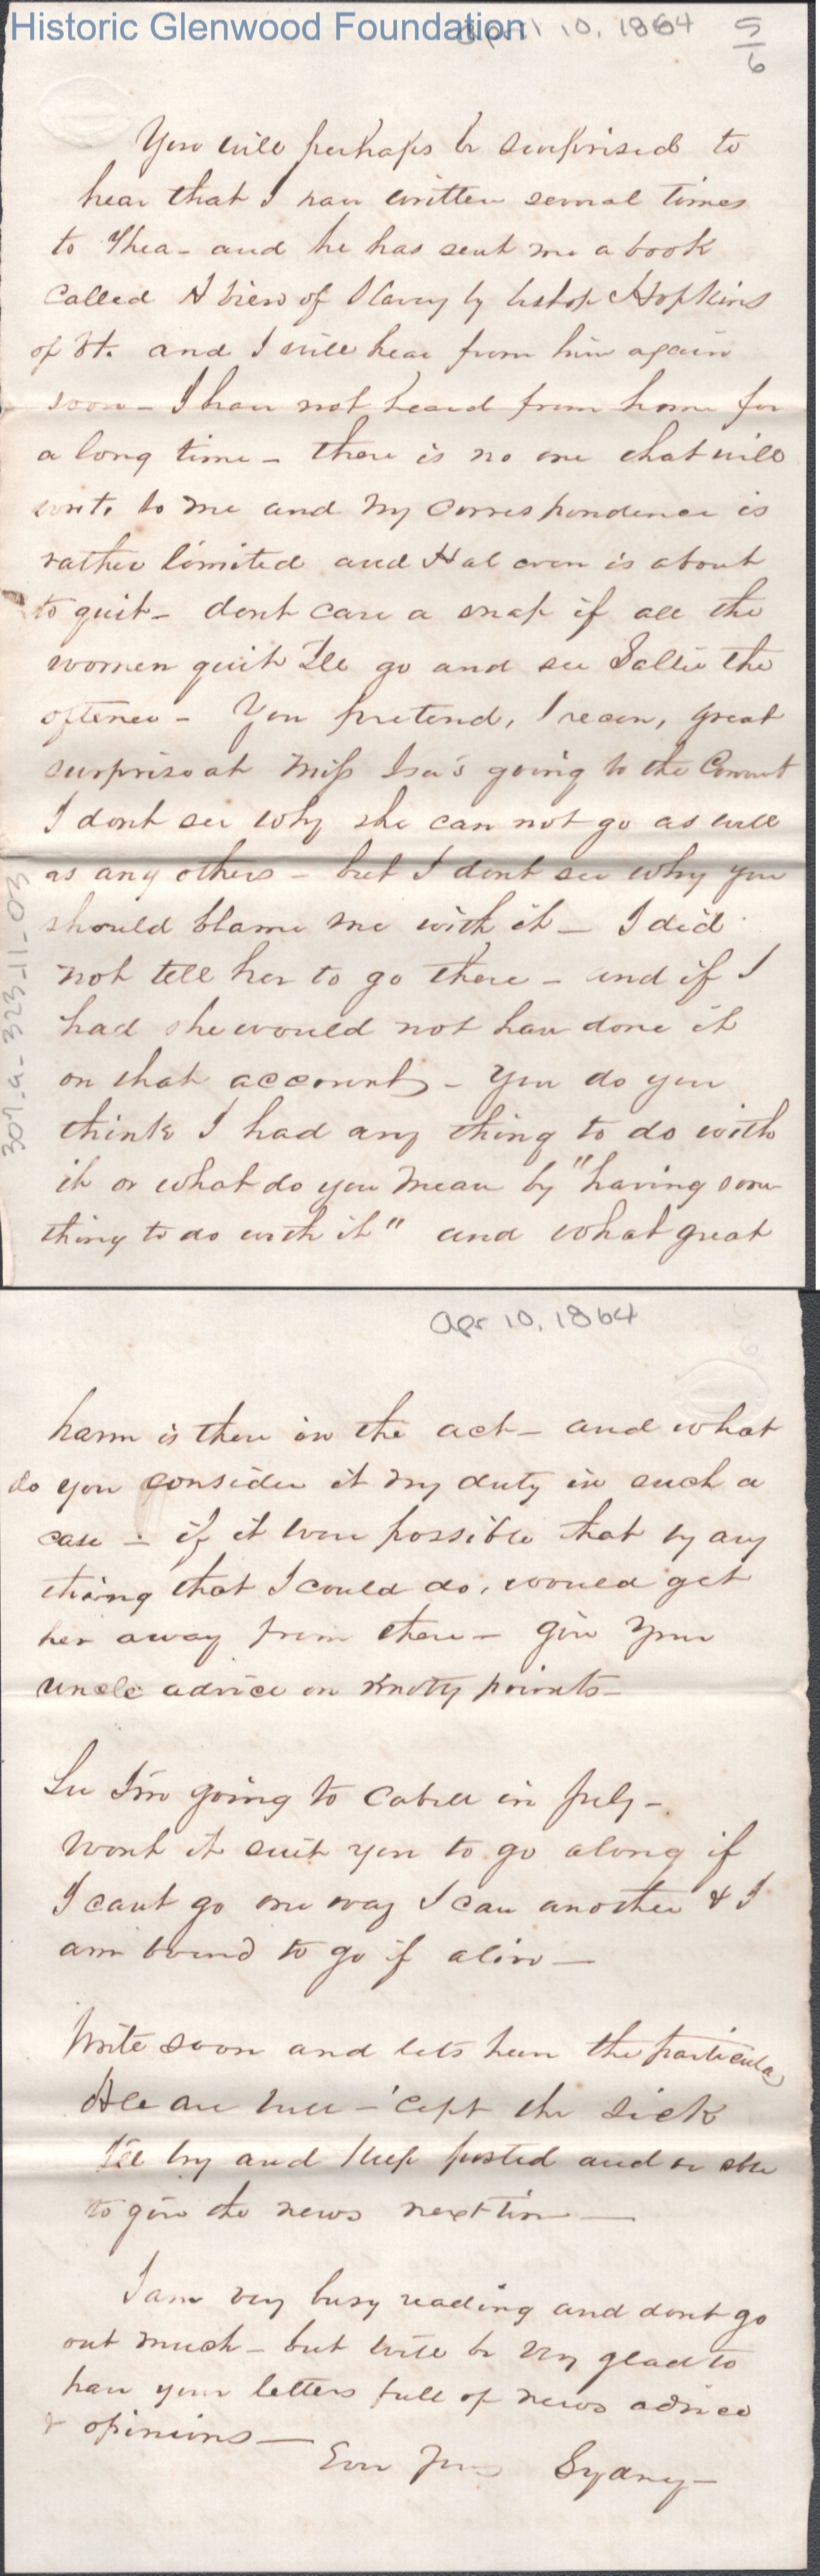 Historic Glenwood Foundation
April 10, 1864
5/6
You will perhaps be surprised to
hear that I hav written several times
to Thea - and he has sent me a book
called A View of Slavery by bishop Hopkins
of Vt. and I will hear from him again
soon - I hav not heard from home for
a long time - there is no one that will
write to me and my correspondence is
rather limited and Hal even is about
to quit - dont care a snap if all the
women quit Ill go and see Sallie the
oftener - You pretend, I recon, great
surprise at Miss Isa's going to the Convent
I dont see why she can not go as well
as any others - but I dont see why you
should blame me with it - I did
not tell her to go there - and if I
had she would not hav done it
on that account - You do you
think I had any thing to do with
it or what do you mean by "having some
thing to do with it" and what great
307-a-323-11-03
Apr 10, 1864
harm is there in the act - and what
do you consider it my duty in such a
case - if it were possible that by any
thing that I could do, would get
her away from there - give your
uncle advice on knoty points -
Lu Im going to Cabell in July -
wont it suit you to go along if
I cant go one way I can another & I
am bound to go if alive -
Write soon and lets hear the particulars
All are well - 'cept the sick
I'll try and keep posted and be able
to give the news next time -
I am very busy reading and dont go
out much - but will be very glad to
hav your letters full of news advice
& opinions -
Ever Yours Sydney -